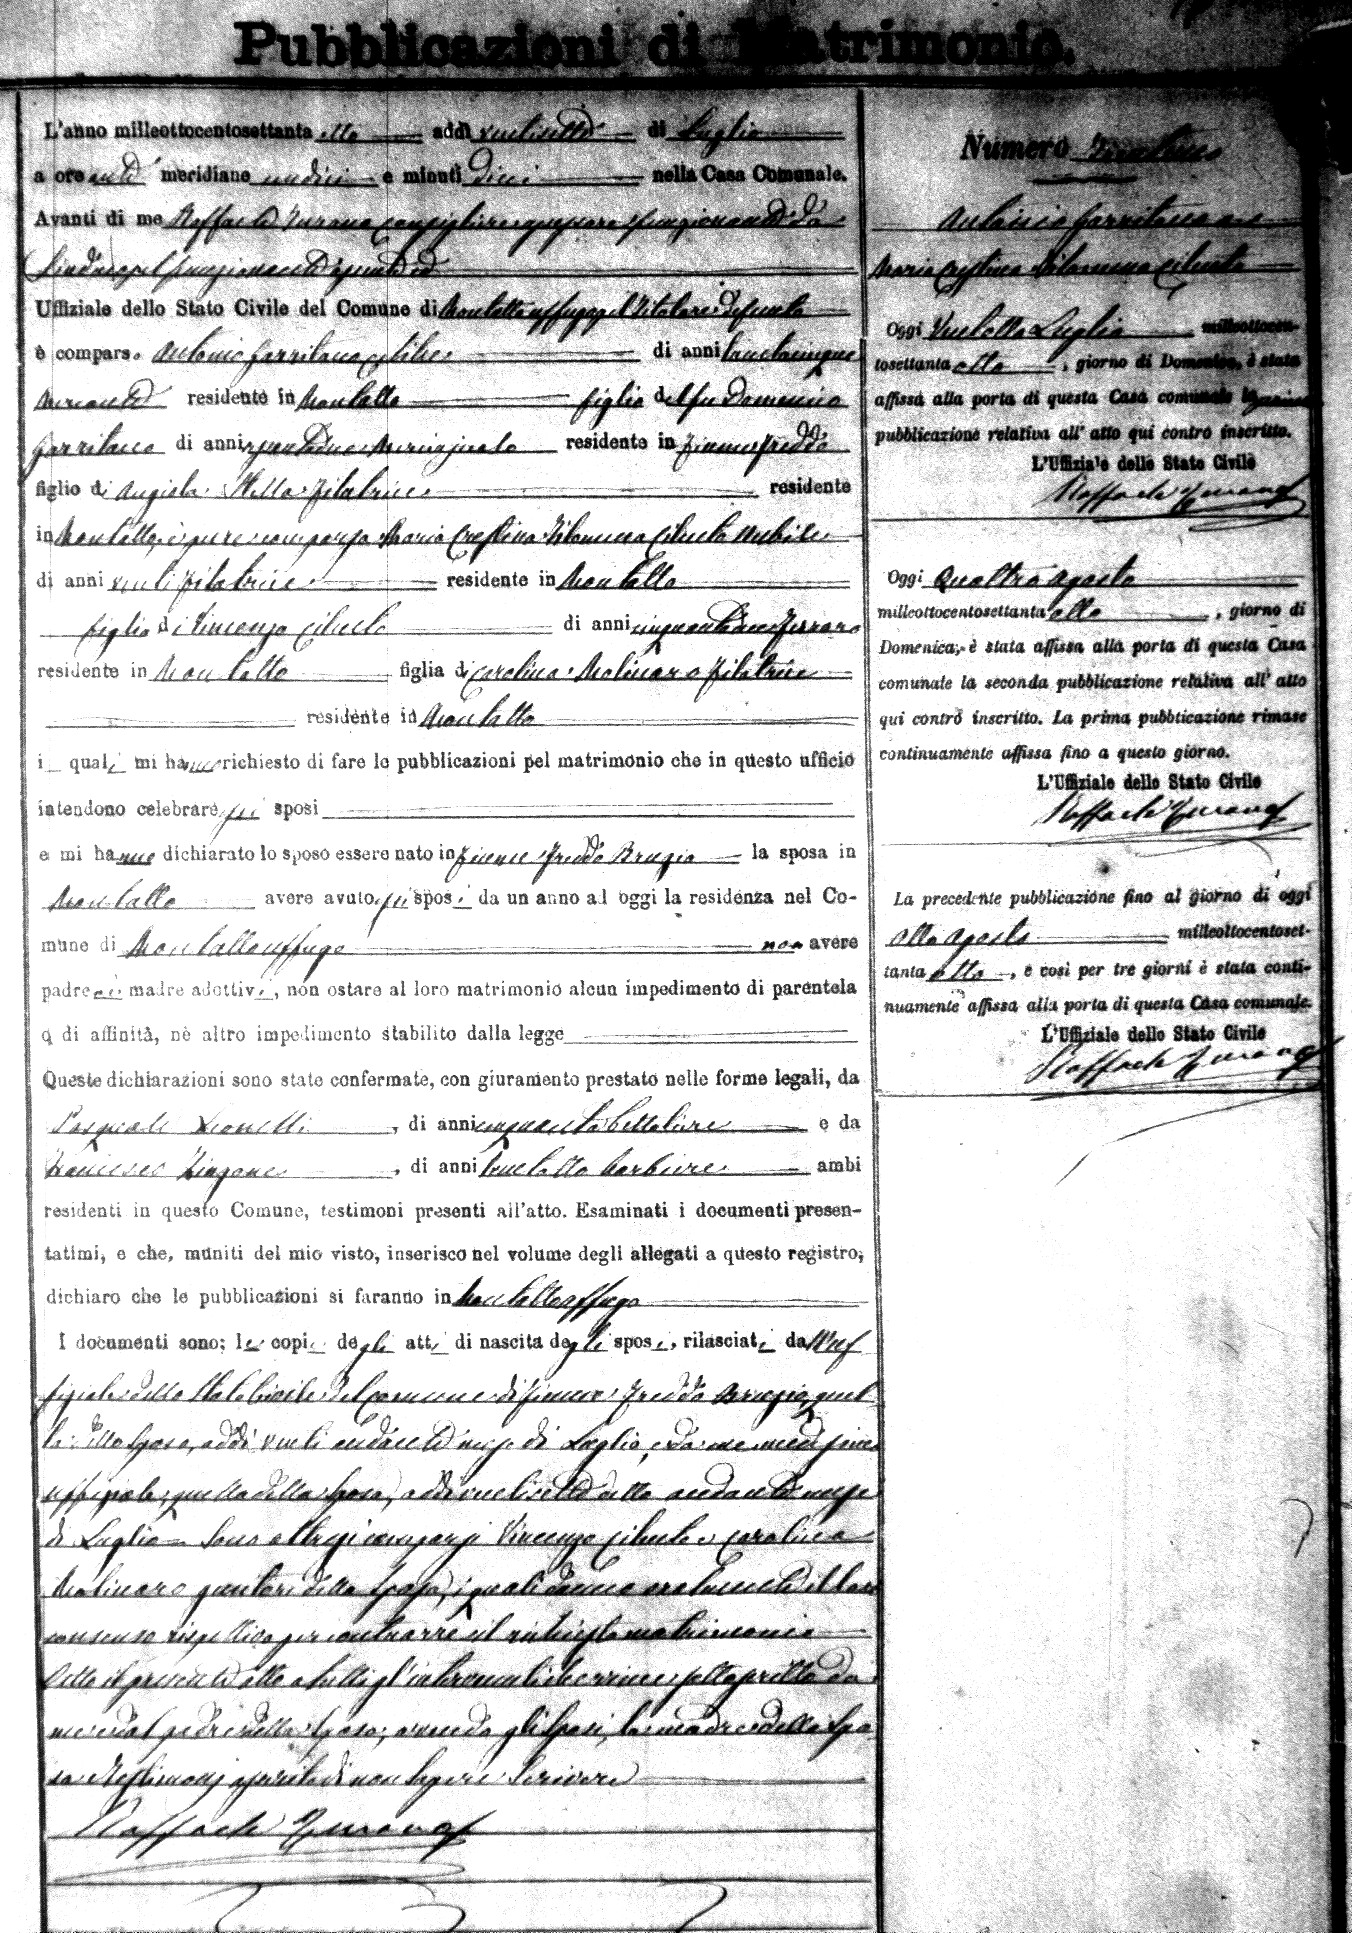 Pubblicazioni di Matrimonio.
L'anno milleottocentosettanta otto addì ventisette di Luglio
a ore anti meridiane undici e minuti dieci nella Casa Comunale.
Avanti di me Raffaele Turano consigliere funzionante da
Sindaco pel funzionante ed
Uffiziale dello Stato Civile del Comune di Montalto Uffugo pel Titolare defunto
è compars o Antonio Garritano celibe di anni trentacinque
residente in Montalto figlio del fu Domenico
Garritano di anni residente in Fiumefreddo
figlio di Angiola Stella filatrice residente
in Montalto, è pure comparsa Maria Crestina Filomena Cilento Nubile
di anni venti filatrice residente in Montalto
figlia di Vincenzo Cilento di anni cinquantadue Ferraro
residente in Montalto figlia di Carolina Molinaro filatrice
residente in Montalto
i quali mi hanno richiesto di fare le pubblicazioni pel matrimonio che in questo ufficio
intendono celebrare gli sposi
e mi hanno dichiarato lo sposo essere nato in Fiume Freddo Bruzio la sposa in
Montalto avere avuto gli sposi da un anno ad oggi la residenza nel Co-
mune di Montalto Uffugo non avere
padre nè madre adottivi, non ostare al loro matrimonio alcun impedimento di parentela
o di affinità, nè altro impedimento stabilito dalla legge
Queste dichiarazioni sono state confermate, con giuramento prestato nelle forme legali, da
Pasquale , di anni cinquanta bettoliere e da
Francesco Zingone , di anni trentotto barbiere ambi
residenti in questo Comune, testimoni presenti all'atto. Esaminati i documenti presen-
tatimi, e che, muniti del mio visto, inserisco nel volume degli allegati a questo registro,
dichiaro che le pubblicazioni si faranno in Montalto Uffugo
I documenti sono; le copie degli atti di nascita degli sposi, rilasciati da l'uf
fiziale dello Stato Civile del Comune di Fiume Freddo Bruzio quel
la dello sposo, addì venti andante mese di Luglio, e da me
uffiziale, quella della sposa, addì ventisette detto andante mese
di Luglio Sono altresì comparsi Vincenzo Cilento e Carolina
Molinaro genitori della sposa, i quali danno il loro
consenso rispettivo per contrarre il matrimonio
Letto il presente atto a tutti gl'intervenuti si è sottoscritto da
me e dal padre della sposa, avendo gli sposi, la madre della spo
sa e testimoni asserito di non sapere scrivere
Raffaele Turano
Numero
Antonio Garritano e
Maria Crestina Filomena Cilento
Oggi Ventotto Luglio milleottocen-
tosettanta otto, giorno di Domenica, è stata
affissa alla porta di questa Casa comunale la prima
pubblicazione relativa all'atto qui contro inscritto.
L'Uffiziale dello Stato Civile
Raffaele Turano
Oggi Quattro Agosto
milleottocentosettanta otto, giorno di
Domenica, è stata affissa alla porta di questa Casa
comunale la seconda pubblicazione relativa all'atto
qui contro inscritto. La prima pubblicazione rimase
continuamente affissa fino a questo giorno.
L'Uffiziale dello Stato Civile
Raffaele Turano
La precedente pubblicazione fino al giorno di oggi
otto Agosto milleottocentoset-
tanta otto, e così per tre giorni è stata conti-
nuamente affissa alla porta di questa Casa comunale.
L'Uffiziale dello Stato Civile
Raffaele Turano